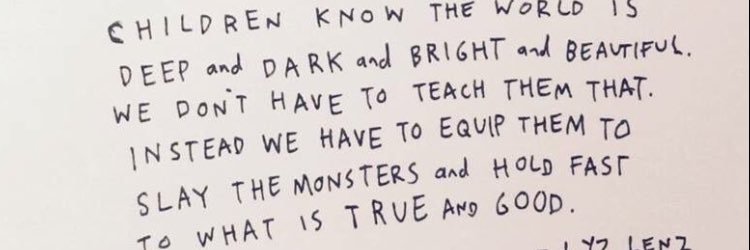 CHILDREN KNOW THE WORLD IS
DEEP and DARK and BRIGHT and BEAUTIFUL.
WE DON'T HAVE TO TEACH THEM THAT.
INSTEAD WE HAVE TO EQUIP THEM TO
SLAY THE MONSTERS and HOLD FAST
TO WHAT IS TRUE AND GOOD.
LYZ LENZ